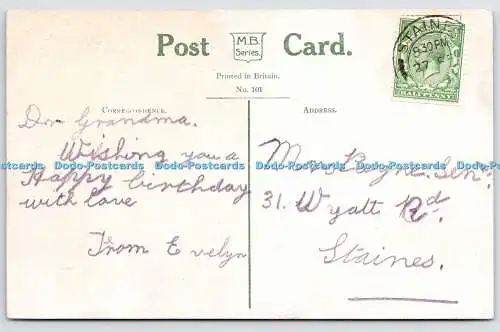 Post M.B. Series. Card.
Printed in Britain.
No. 101
CORRESPONDENCE.
ADDRESS.
STAIN
9.30 PM
27
Dr Grandma.
Wishing you a
Happy birthday
with love
From Evelyn
Mrs Payne. Senr.
31. Wyatt Rd.
Staines.
Dodo-Postcards Dodo-Postcards Dodo-Postcards Dodo-Postcards Dodo-Postcards Dodo-Postcards